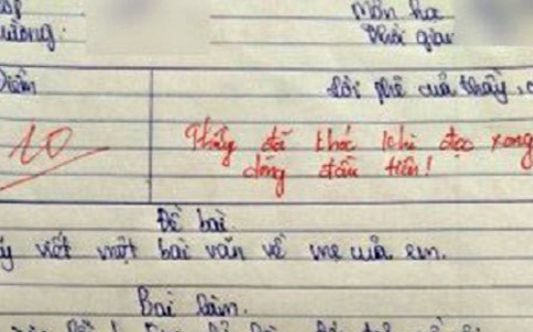 lớp
trường: Môn học
Thời gian
Điểm Lời phê của thầy, c
10 Thầy đã khóc khi đọc xong
dòng đầu tiên!
Đề bài
ãy viết một bài văn về mẹ của em.
Bài làm.